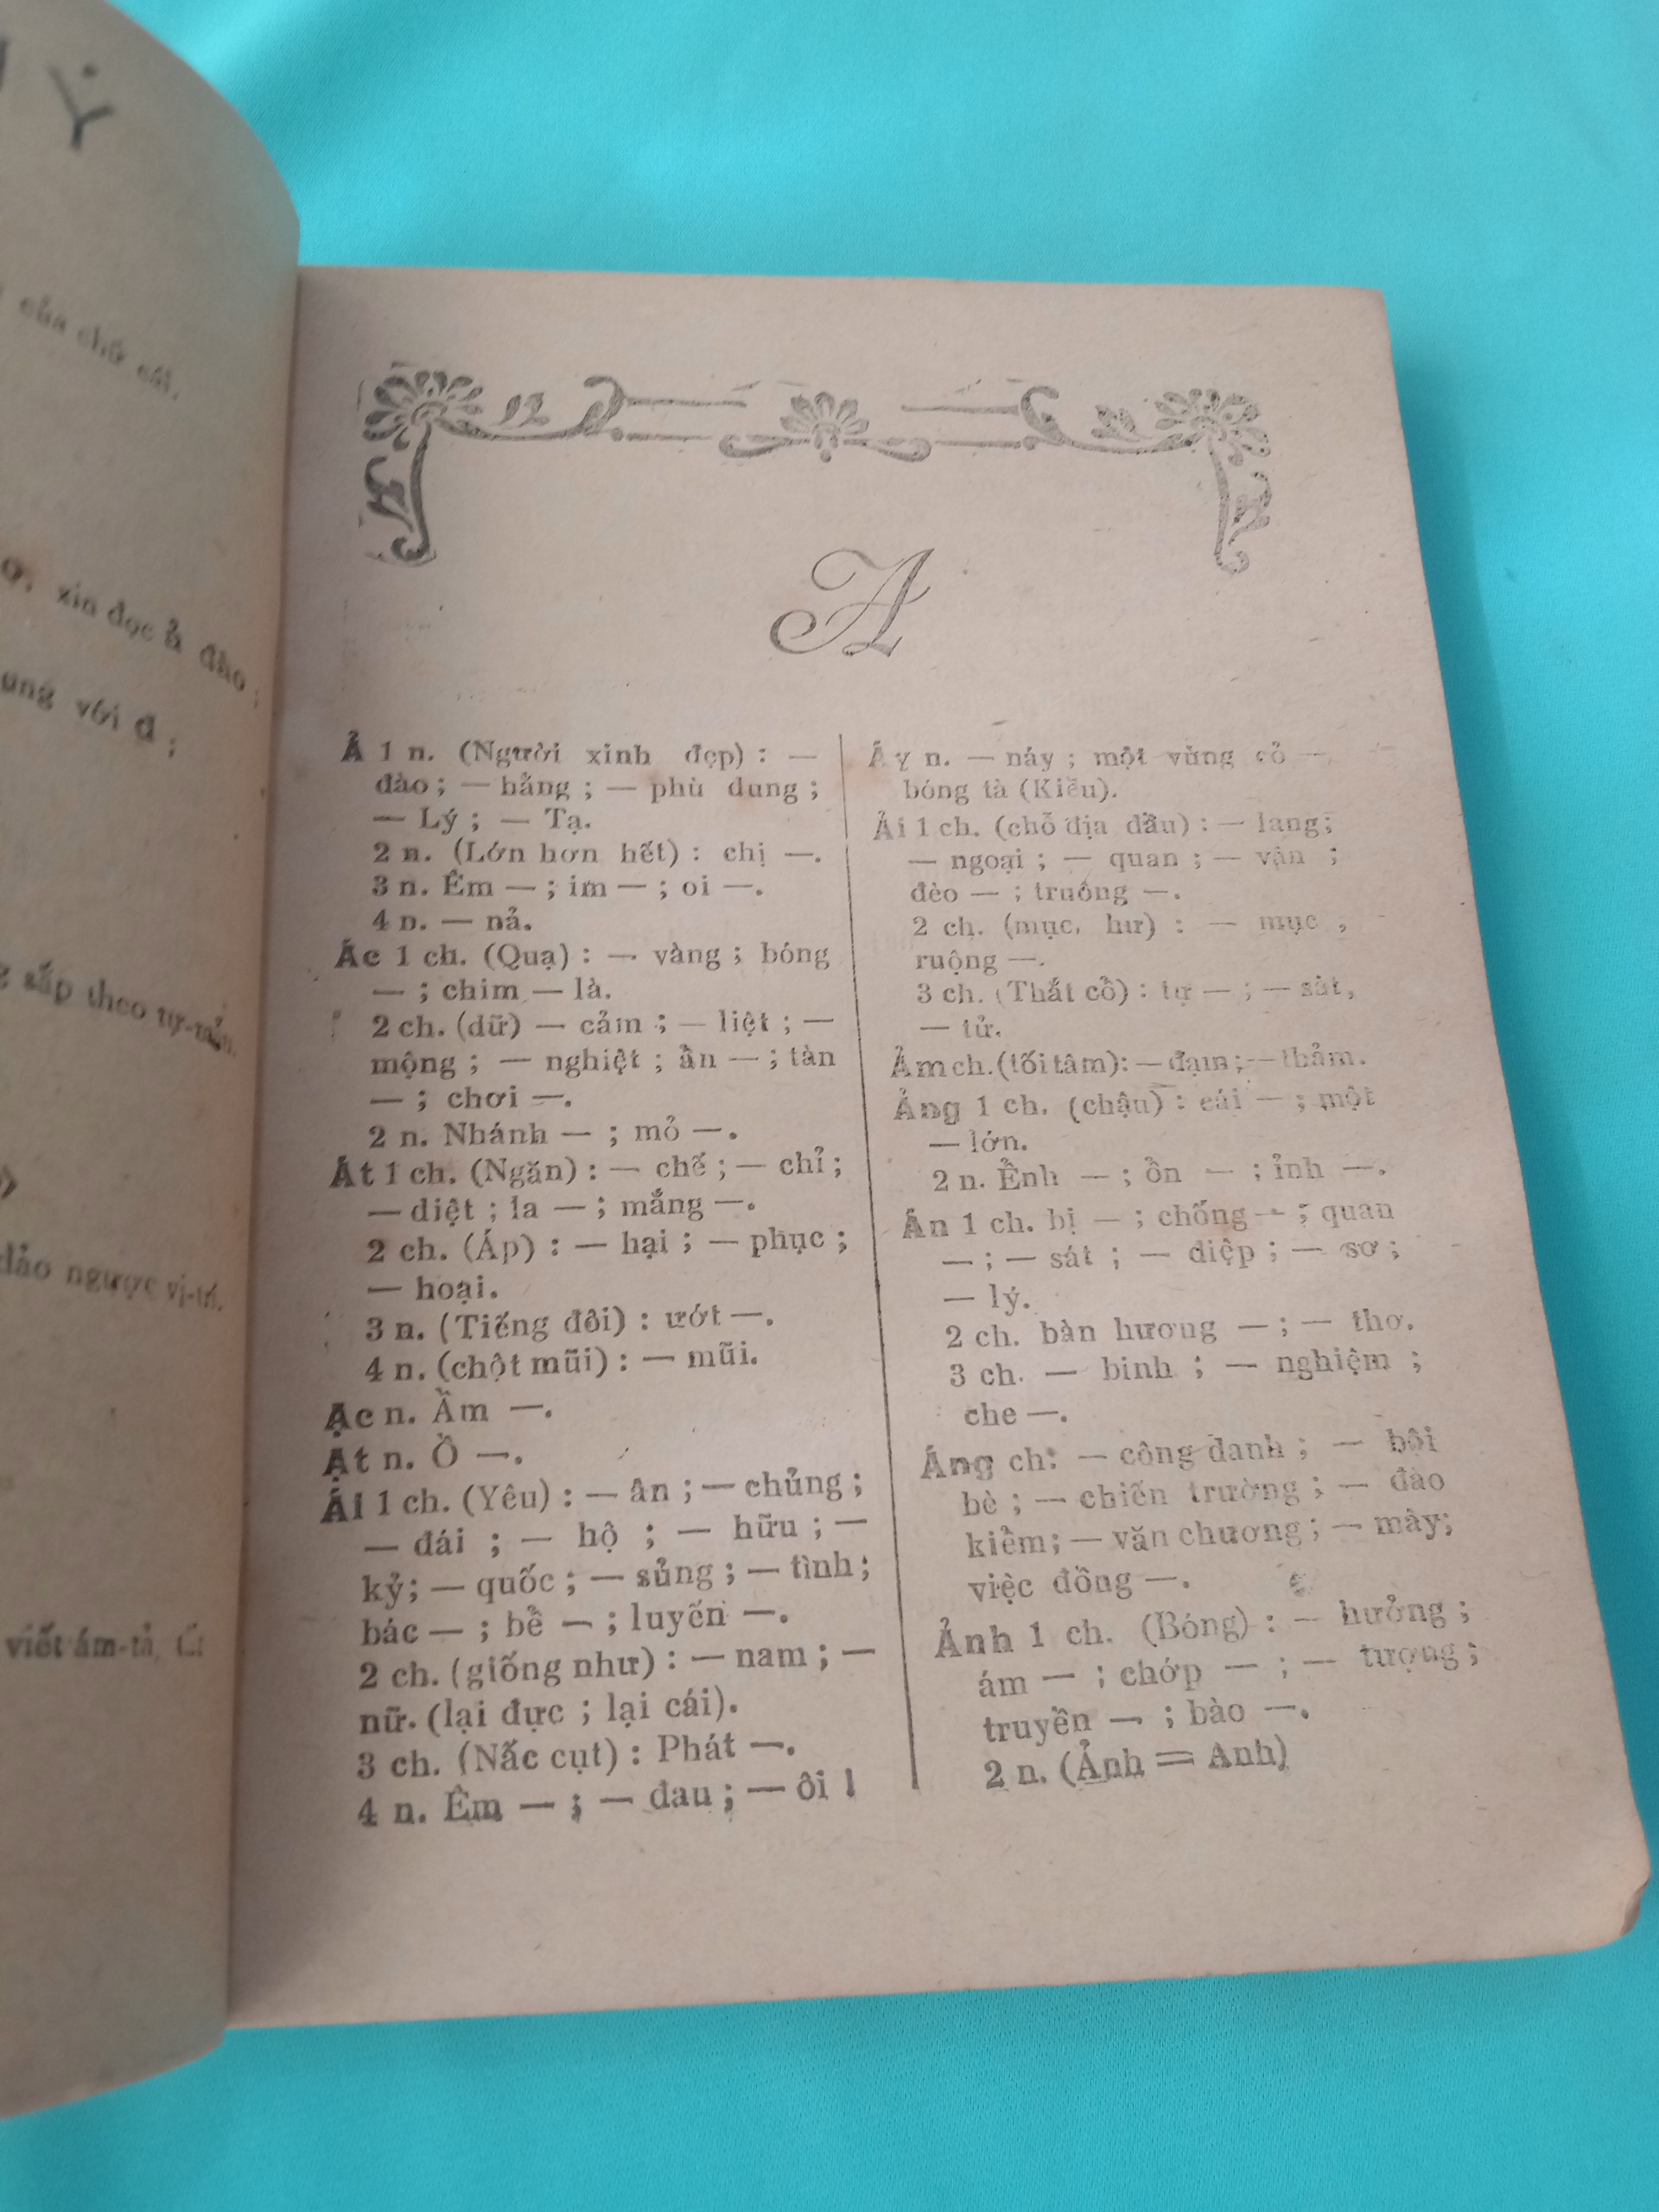 Ý
của chữ cái.
xin đọc ả đào ;
với đ ;
sắp theo tự-mẫu.
đảo ngược vị-trí.
viết ám-tả,
A
Ả 1 n. (Người xinh đẹp) : —
đào ; — hằng ; — phù dung ;
— Lý ; — Tạ.
2 n. (Lớn hơn hết) : chị —.
3 n. Êm — ; im — ; oi —.
4 n. — nả.
Ác 1 ch. (Quạ) : — vàng ; bóng
— ; chim — là.
2 ch. (dữ) — cảm ; — liệt ; —
mộng ; — nghiệt ; ẩn — ; tàn
— ; chơi —.
2 n. Nhánh — ; mỏ —.
Át 1 ch. (Ngăn) : — chế ; — chỉ ;
— diệt ; la — ; mắng —.
2 ch. (Áp) : — hại ; — phục ;
— hoại.
3 n. (Tiếng đôi) : ướt —.
4 n. (chột mũi) : — mũi.
Ạc n. Ầm —.
Ạt n. Ồ —.
Ái 1 ch. (Yêu) : — ân ; — chủng ;
— đái ; — hộ ; — hữu ; —
kỷ; — quốc ; — sủng ; — tình ;
bác — ; bề — ; luyến —.
2 ch. (giống như) : — nam ; —
nữ. (lại đực ; lại cái).
3 ch. (Nấc cụt) : Phát —.
4 n. Êm — ; — đau ; — ôi !
Áy n. — náy ; một vùng cỏ —
bóng tà (Kiều).
Ải 1 ch. (chỗ địa đầu) : — lang ;
— ngoại ; — quan ; — vân ;
đèo — ; truông —.
2 ch. (mục, hư) : — mục ,
ruộng —.
3 ch. (Thắt cổ) : tự — ; — sát,
— tử.
Ảm ch. (tối tăm) : — đạm ; — thảm.
Ảng 1 ch. (chậu) : cái — ; một
— lớn.
2 n. Ểnh — ; ổn — ; ỉnh —.
Án 1 ch. bị — ; chống — ; quan
— ; — sát ; — điệp ; — sơ ;
— lý.
2 ch. bàn hương — ; — thơ.
3 ch. — binh ; — nghiệm ;
che —.
Áng ch: — công danh ; — bội
bè ; — chiến trường ; — đào
kiểm; — văn chương ; — mây;
việc đồng —.
Ảnh 1 ch. (Bóng) : — hưởng ;
ám — ; chớp — ; — tượng ;
truyền — ; bào —.
2 n. (Ảnh = Anh)